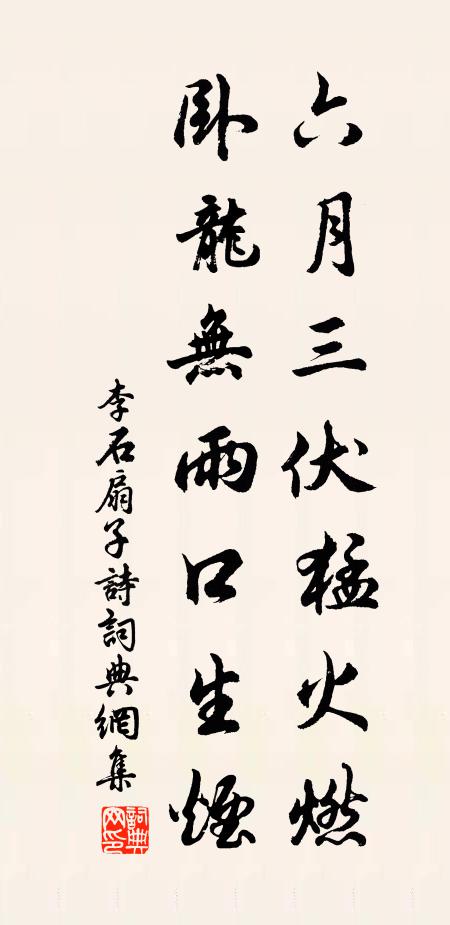 六月三伏猛火燃
臥龍無雨口生煙
李石扇子詩詞典網集
詞典網印